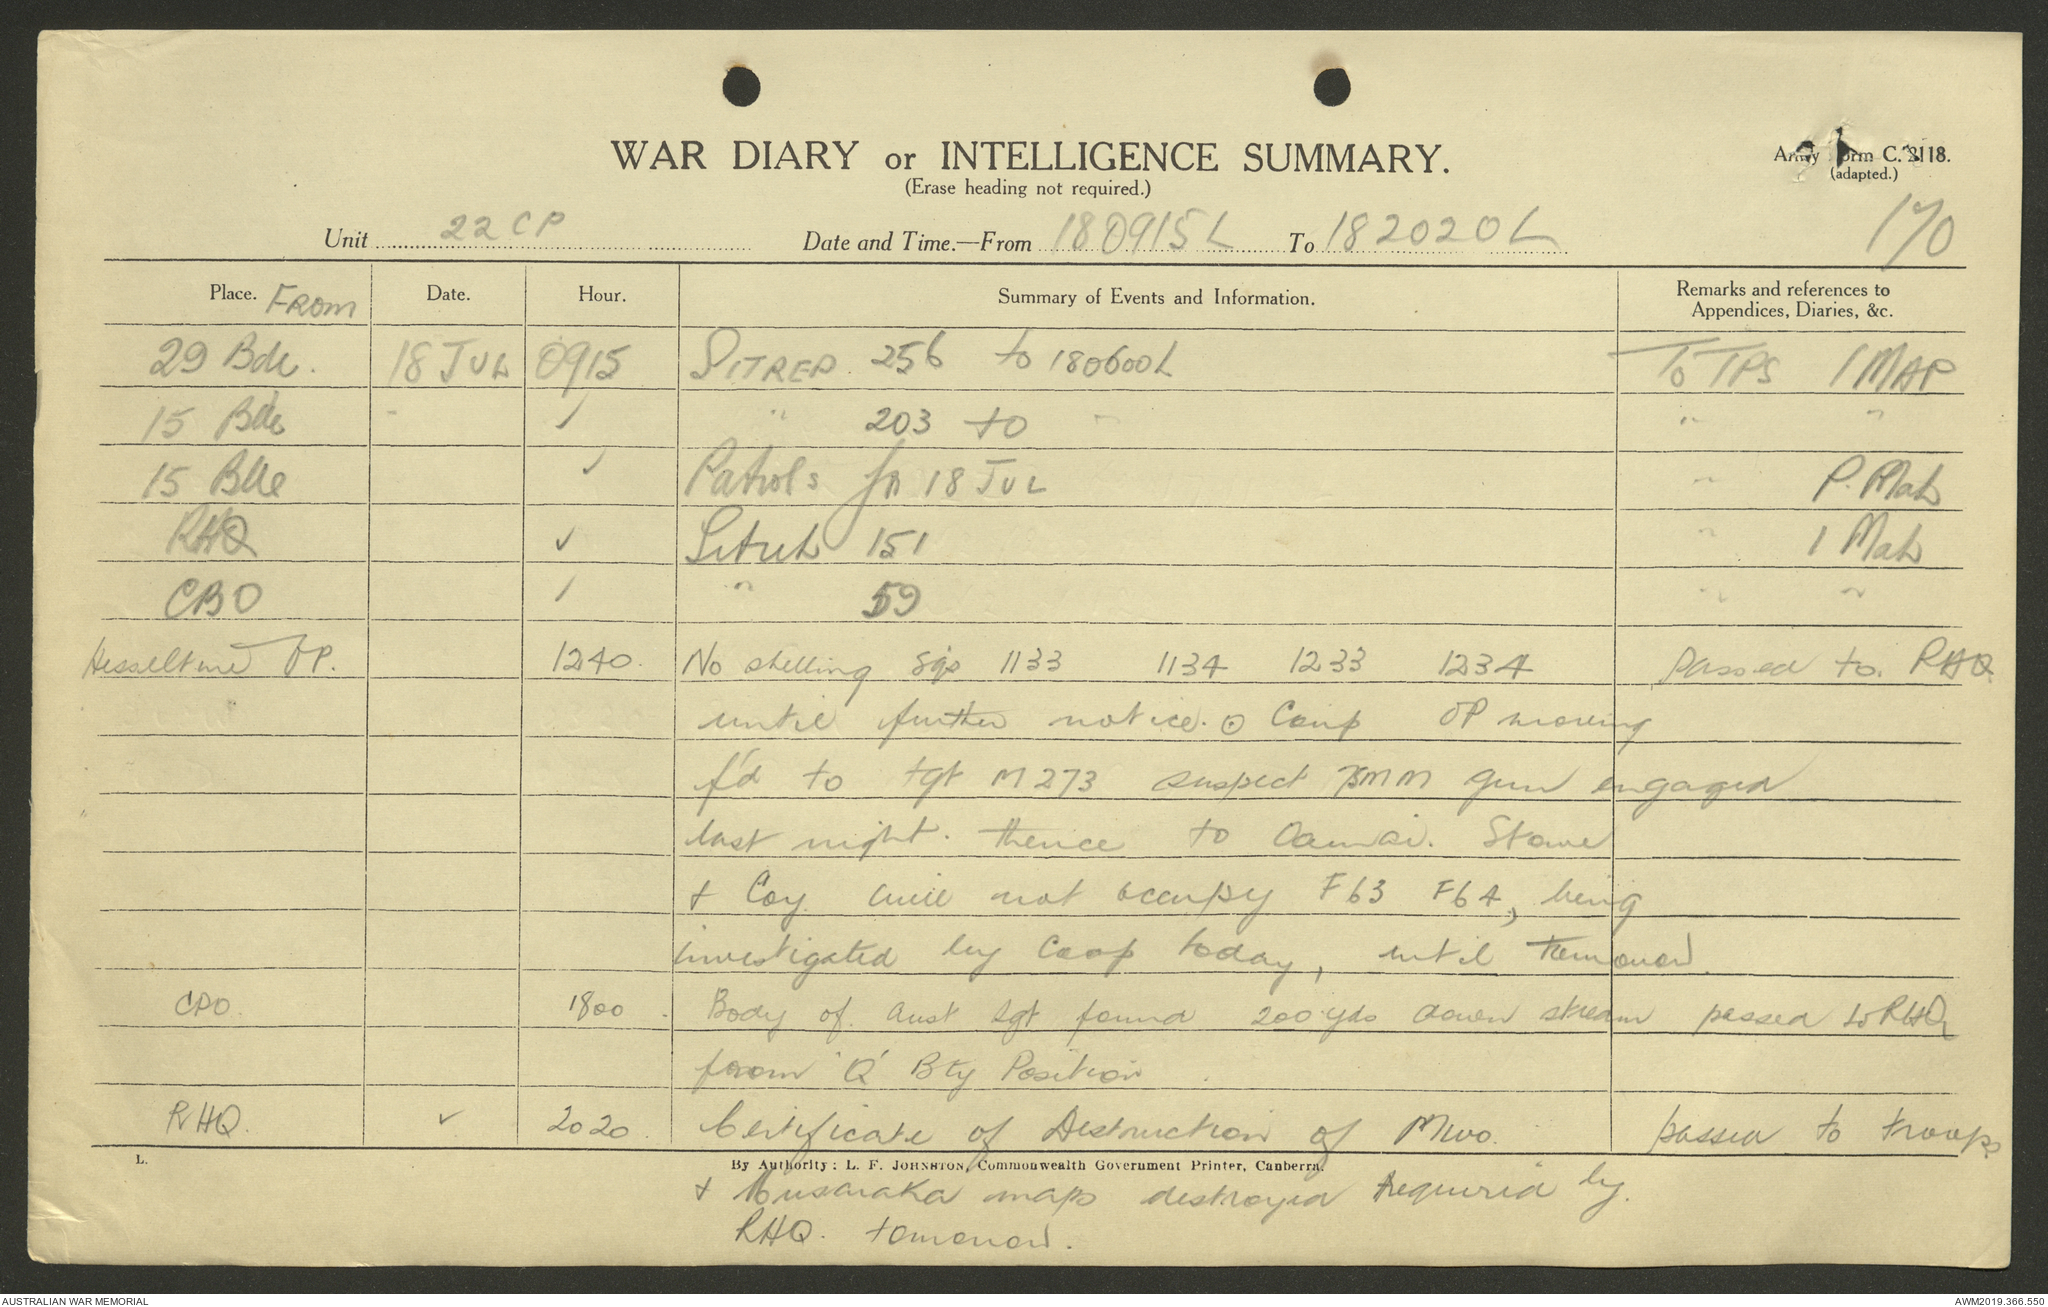 WAR DIARY or INTELLIGENCE SUMMARY.
(Erase heading not required.)
Army Form C. 2118.
(adapted.)
Unit 22 CP Date and Time.—From 180915L To 182020L
170
Place. FROM Date. Hour. Summary of Events and Information. Remarks and references to Appendices, Diaries, &c.
29 Bde. 18 JUL 0915 SITREP 256 to 180600L To TPS 1 MAP
15 Bde " ✓ " 203 to " " "
15 Bde ✓ Patrols for 18 JUL " P. Map
RHQ ✓ Sitrep 151 " 1 Map
CBO ✓ " 59 " "
Hesseltine OP. 1240. No shelling sqs 1133 1134 1233 1234 passed to. RHQ
until further notice. ⊙ OP moving
f'd to tgt M273 suspect MM gun engaged
last night. thence to Stowe
& Coy will not occupy F63 F64, being
investigated by today, until tomorrow.
CPO. 1800. Body of Aust Sgt found 200 yds down stream passed to RHQ
from 'Q' Bty Position.
RHQ. ✓ 2020. Certificate of Destruction of Mivo. passed to troops
L.
By Authority: L. F. JOHNSTON, Commonwealth Government Printer, Canberra.
& Musaraka maps destroyed required by.
RHQ. tomorrow.
AUSTRALIAN WAR MEMORIAL
AWM2019.366.550